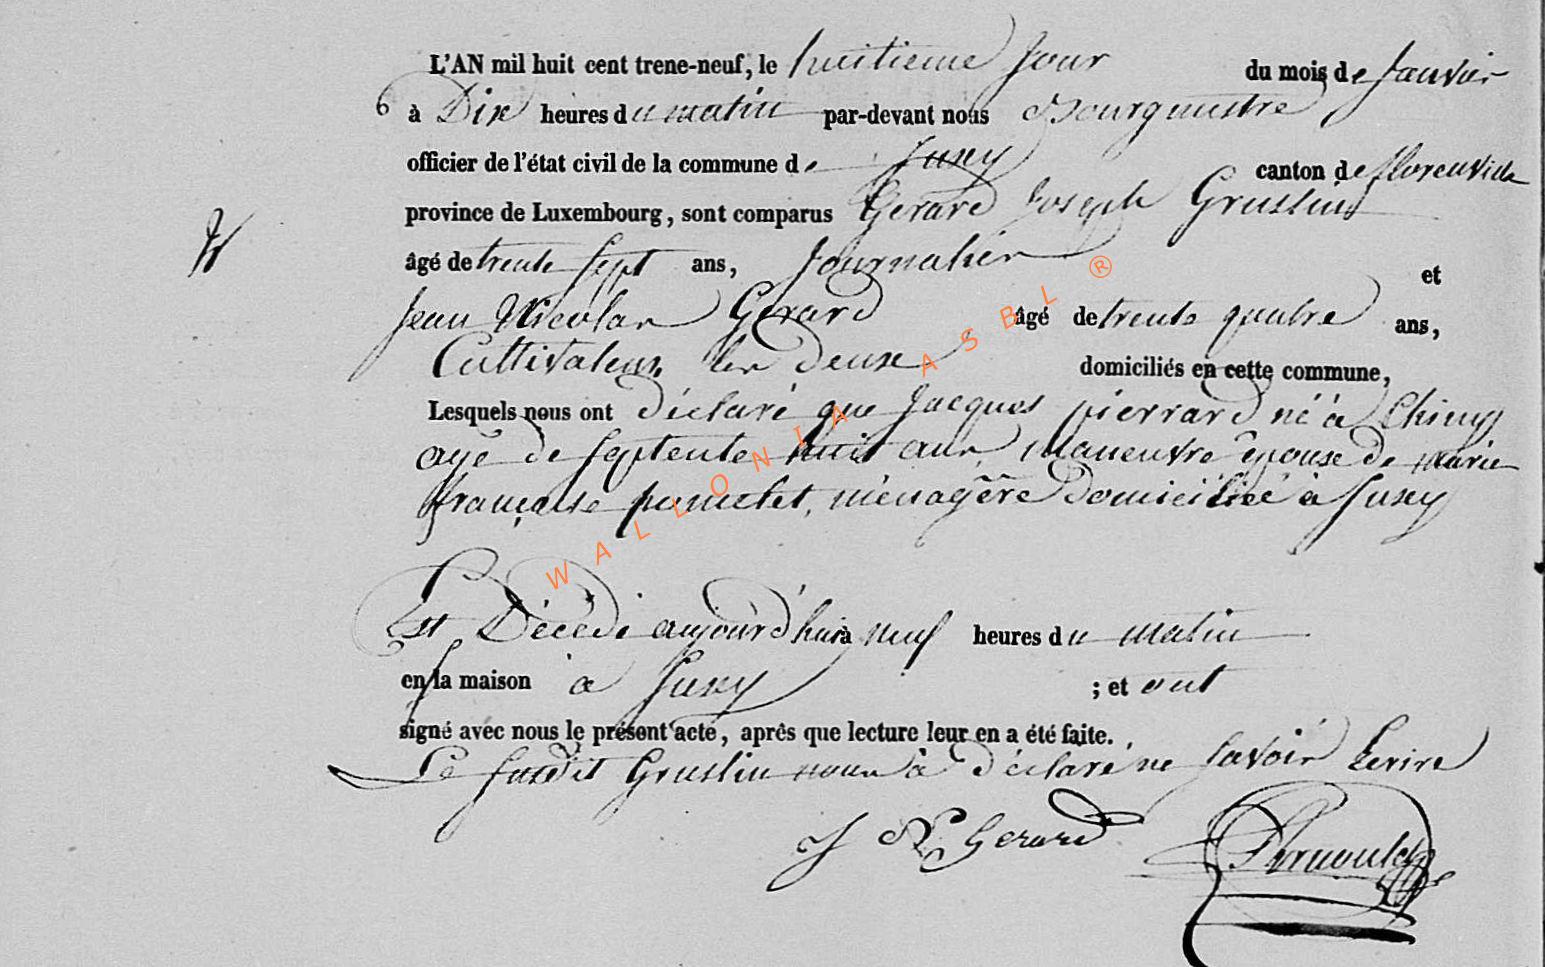 L'AN mil huit cent trene-neuf, le huitieme jour du mois de Janvier
6 à Dix heures du matin par-devant nous Bourgmestre
officier de l'état civil de la commune de Jusey canton de florenville
province de Luxembourg, sont comparus Gerard Joseph Gruslin
âgé de trente sept ans, Journalier et
Jean Nicolas Gerard âgé de trente quatre ans,
Cultivateur les deux domiciliés en cette commune,
Lesquels nous ont déclaré que Jacques pierrard né à Chiny
agé de septente huit ans Maneuvre epouse de marie
françoise ménagêre domiciliée à Jusey
Est Décédé aujourd'hui à neuf heures du matin
en sa maison à Jusey ; et ont
signé avec nous le présent acte, après que lecture leur en a été faite.
Le susdit Gruslin nous à déclaré ne savoir Ecrire
J N Gerard
WALLONIA ASBL ®